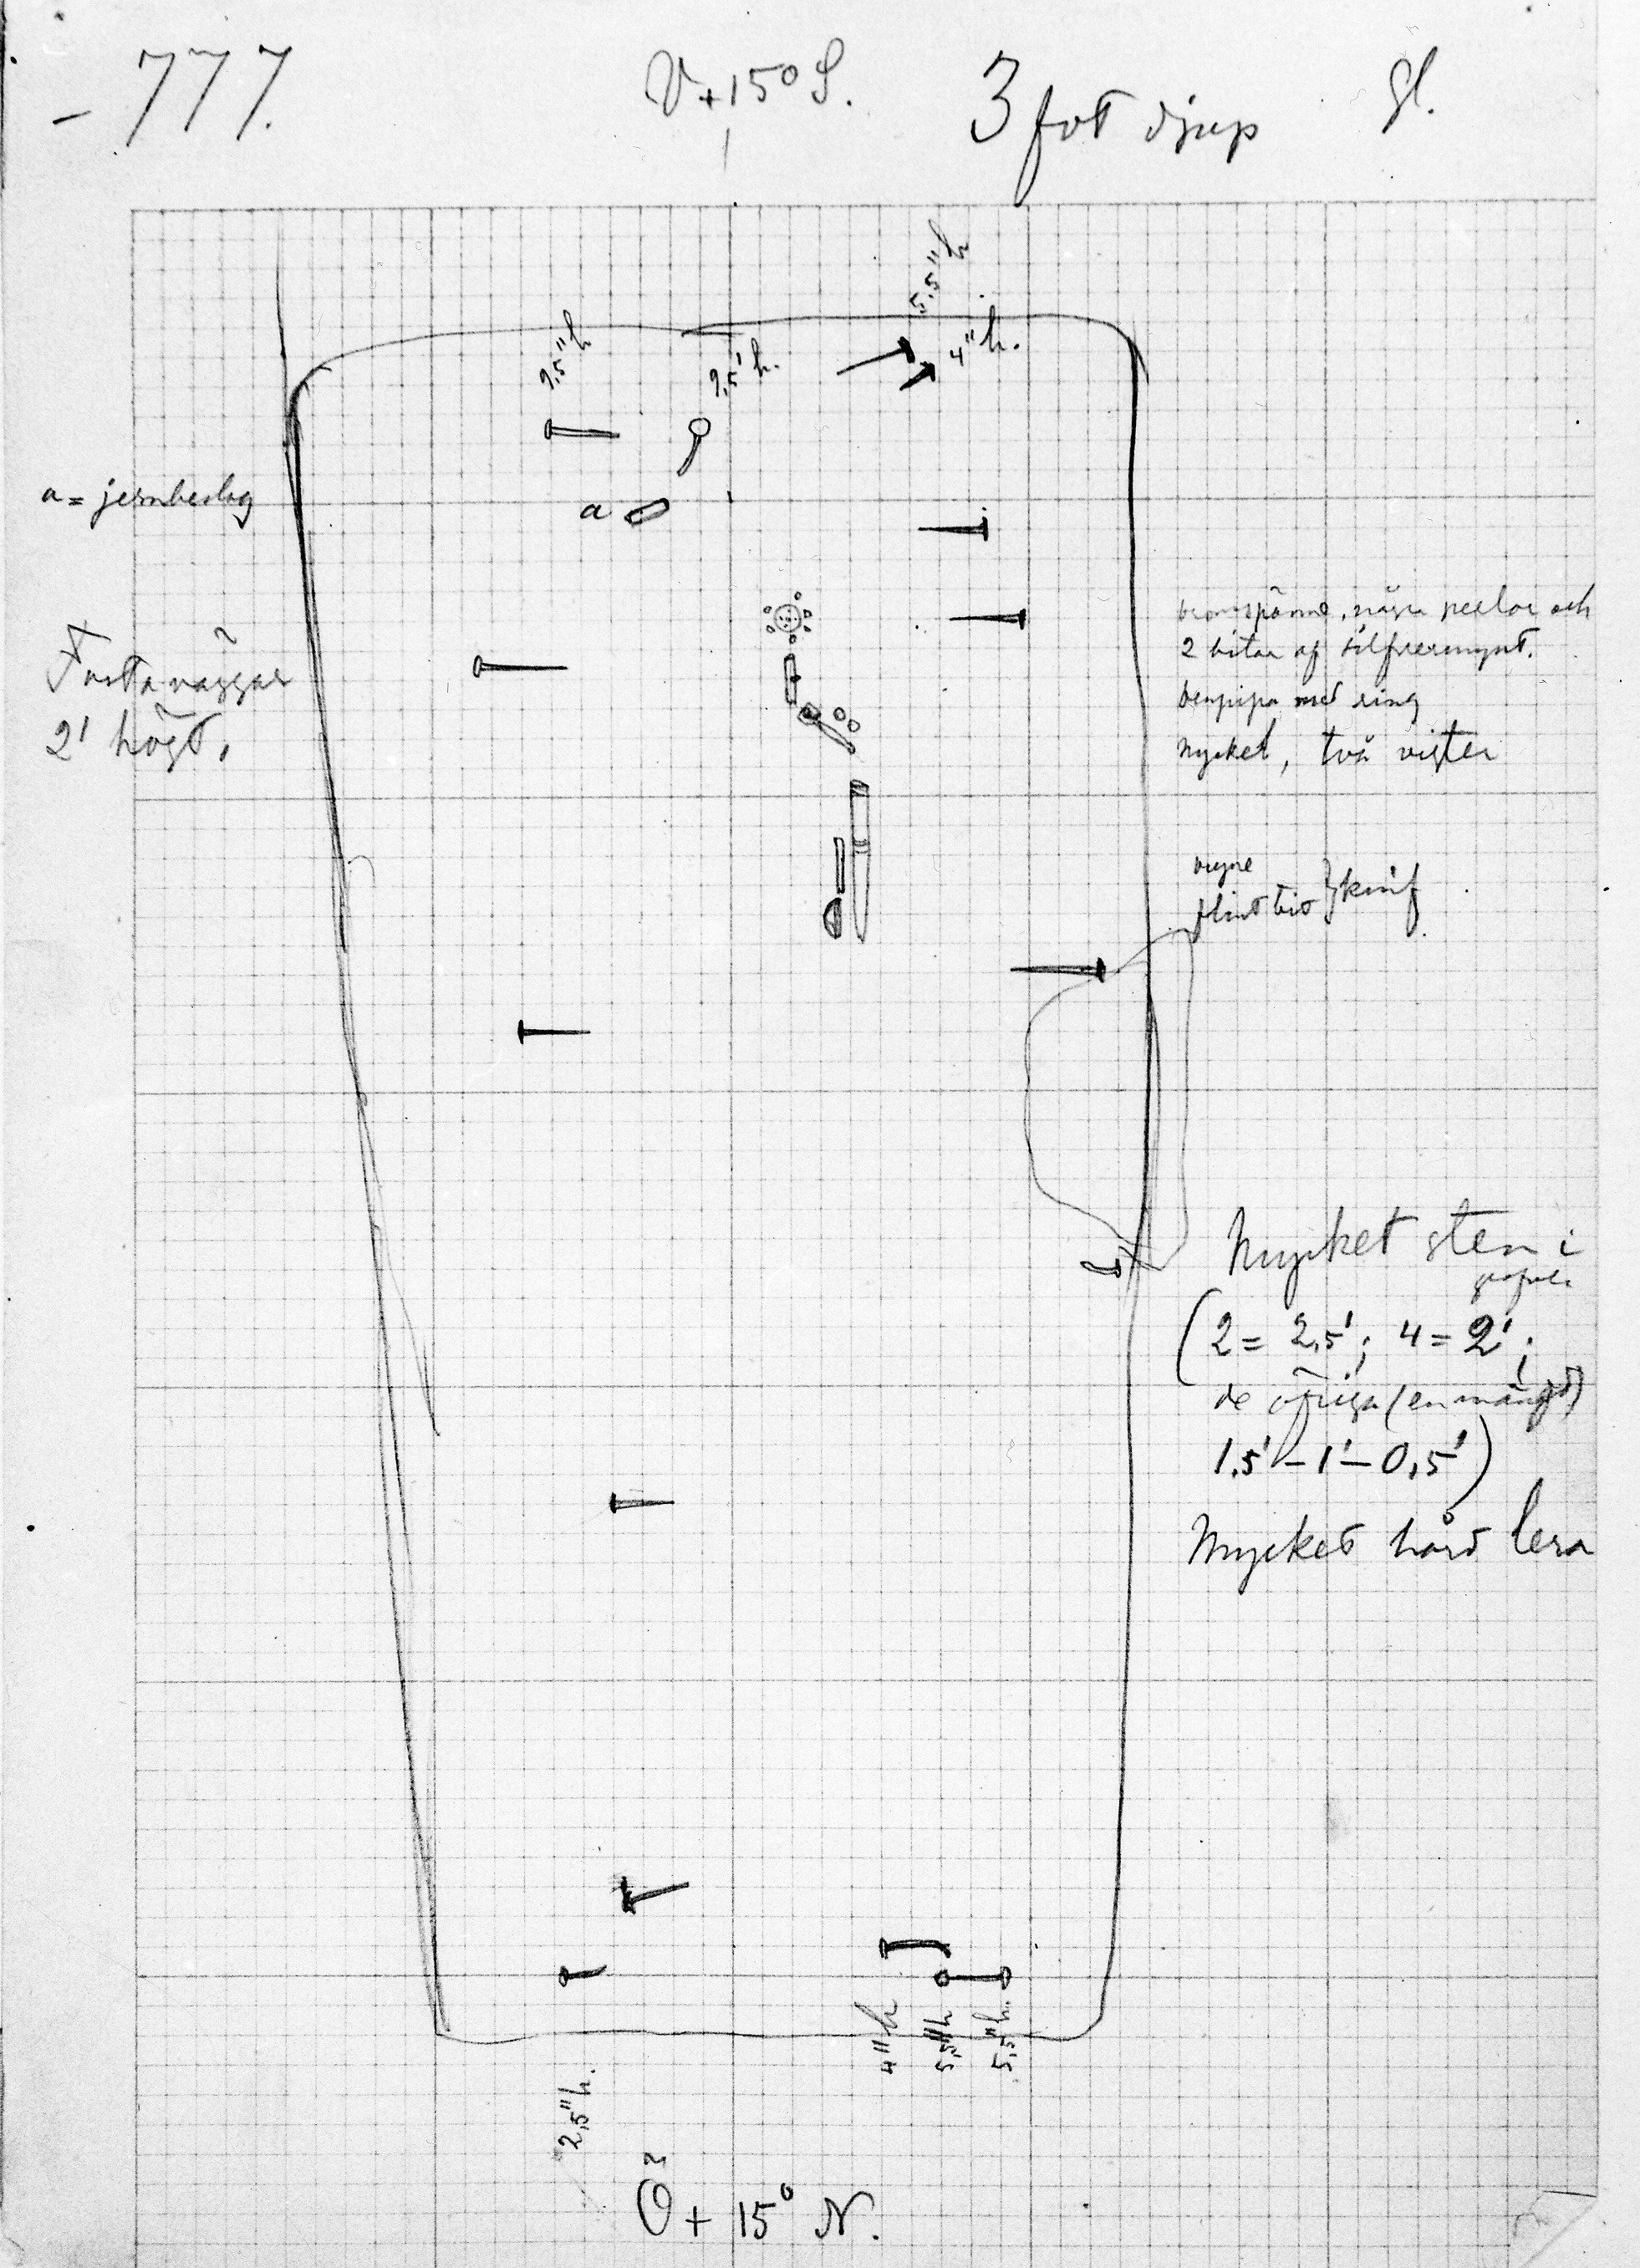 777.
V + 15° S.
3 fot djup
gl.
5,5" h
4" h.
2,5" h
2,5' h.
a = jernbeslag
a
Fasta väggar
2' högt.
bronsspänne, några perlor och
2 bitar af silfvermynt.
benpipa med ring
nyckel, två
bryne
flintbit } knif
Mycket sten i
grafven
(2 = 2,5'; 4 = 2';
de öfriga (en mängd)
1,5' – 1' – 0,5')
Mycket hård lera
4" h
5,5" h
5,5" h.
2,5" h.
O + 15° N.